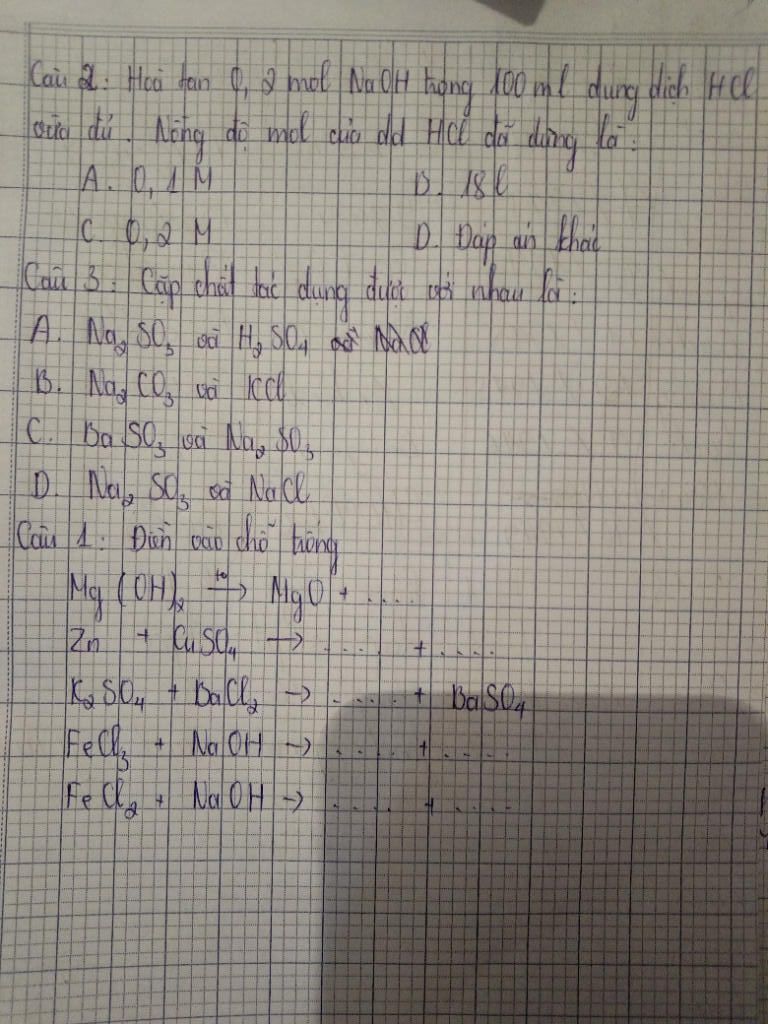 Câu 2: Hoà tan 0,2 mol NaOH trong 100 ml dung dịch HCl
vừa đủ. Nồng độ mol của dd HCl đã dùng là:
A. 0,1 M B. 18l
C. 0,2 M D. Đáp án khác
Câu 3: Cặp chất tác dụng được với nhau là:
A. Na₂SO₃ và H₂SO₄
B. Na₂CO₃ và KCl
C. BaSO₃ và Na₂SO₃
D. Na₂SO₃ và NaCl
Câu 1: Điền vào chỗ trống
Mg(OH)₂ –tº→ MgO + .....
Zn + CuSO₄ → ..... + .....
K₂SO₄ + BaCl₂ → ..... + BaSO₄
FeCl₃ + NaOH → ..... + .....
FeCl₂ + NaOH → ..... + .....